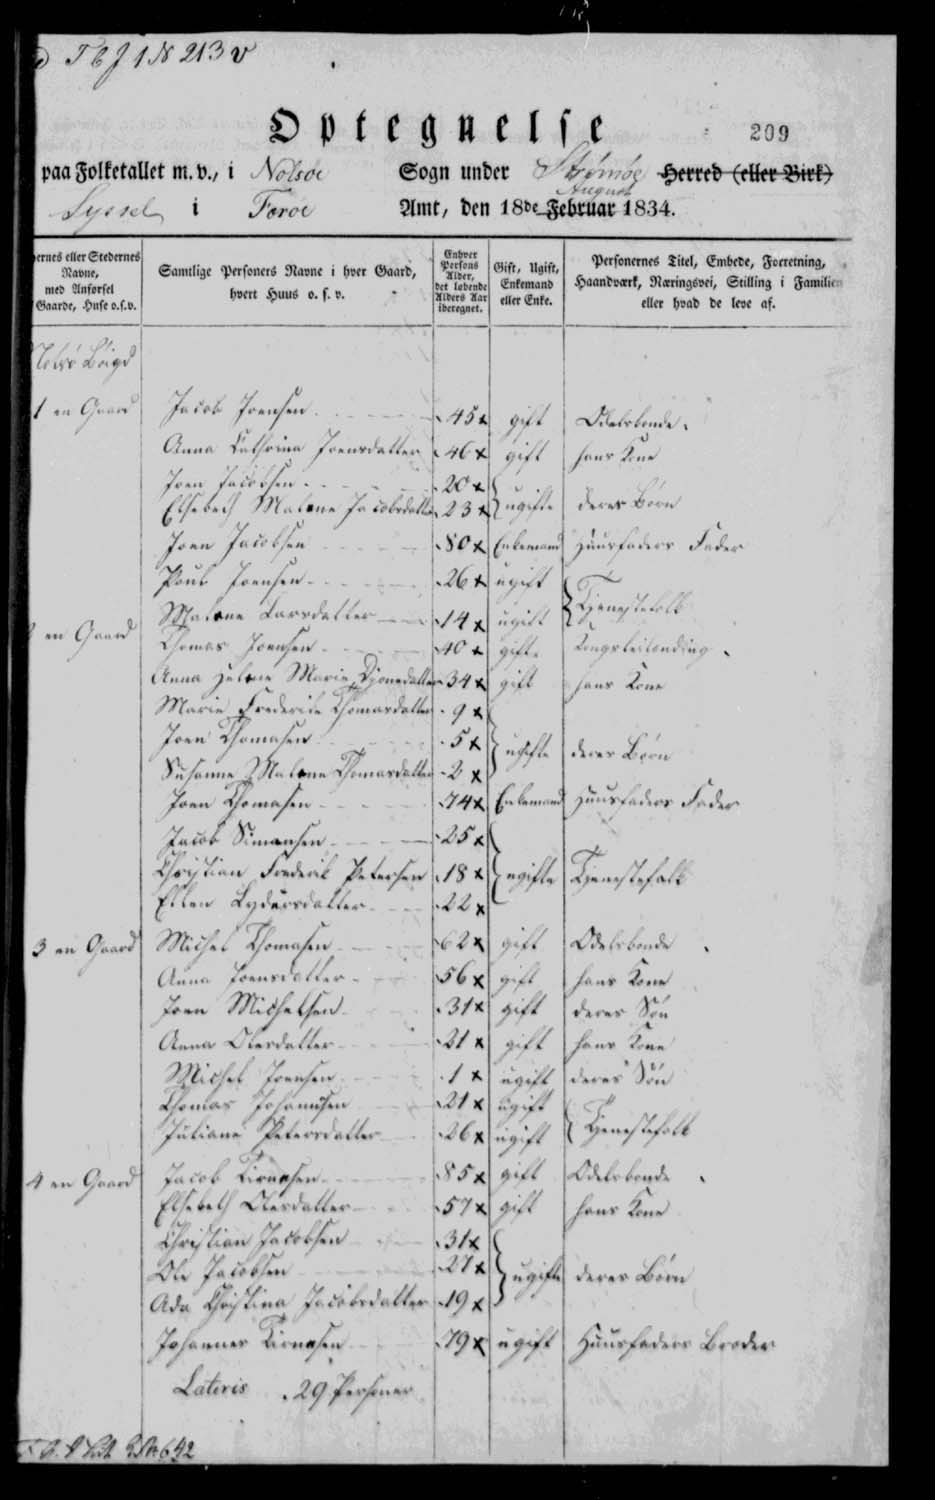 T 6 J 1 N 213 v
Optegnelse
209
paa Folketallet m. v., i Nolsöe Sogn under Strömöe Herred (eller Birk)
August
Syssel i Færöe Amt, den 18de Februar 1834.
ernes eller Stedernes Navne, med Anførsel Gaarde, Huse o.s.v.
Samtlige Personers Navne i hver Gaard, hvert Huus o. s. v.
Enhver Persons Alder, det løbende Alders Aar iberegnet.
Gift, Ugift, Enkemand eller Enke.
Personernes Titel, Embede, Forretning, Haandværk, Næringsvei, Stilling i Familien eller hvad de leve af.
Nolsö Böigd
1 en Gaard Jacob Joensen 45 x gift Odelsbonde
Anna Cathrina Joensdatter 46 x gift hans Kone
Joen Jacobsen 20 x
Elsebeth Malene Jacobsdatter 23 x ugifte deres Börn
Joen Jacobsen 80 x Enkemand Huusfaders Fader
Poul Joensen 26 x ugift
Malene Larsdatter 14 x ugift Tjenestefolk
en Gaard Thomas Joensen 40 x gift Kongsleilending
Anna Helene Marie Djonedatter 34 x gift hans Kone
Marie Frederike Thomasdatter 9 x
Joen Thomasen 5 x ugifte deres Börn
Susanne Malene Thomasdatter 2 x
Joen Thomasen 74 x Enkemand Huusfaders Fader
Jacob Simonsen 25 x
Christian Frederik Petersen 18 x ugifte Tjenestefolk
Ellen Lydersdatter 22 x
3 en Gaard Michel Thomasen 62 x gift Odelsbonde
Anna Joensdatter 56 x gift hans Kone
Joen Michelsen 31 x gift deres Sön
Anna Olesdatter 21 x gift hans Kone
Michel Joensen 1 x ugift deres Sön
Thomas Johannesen 21 x ugift
Juliane Petersdatter 26 x ugift Tjenestefolk
4 en Gaard Jacob 85 x gift Odelsbonde
Elsebeth Olesdatter 57 x gift hans Kone
Christian Jacobsen 31 x
Ole Jacobsen 27 x ugifte deres Börn
Ada Christina Jacobsdatter 19 x
Johannes 79 x ugift Huusfaders Broder
Lateris 29 Personer